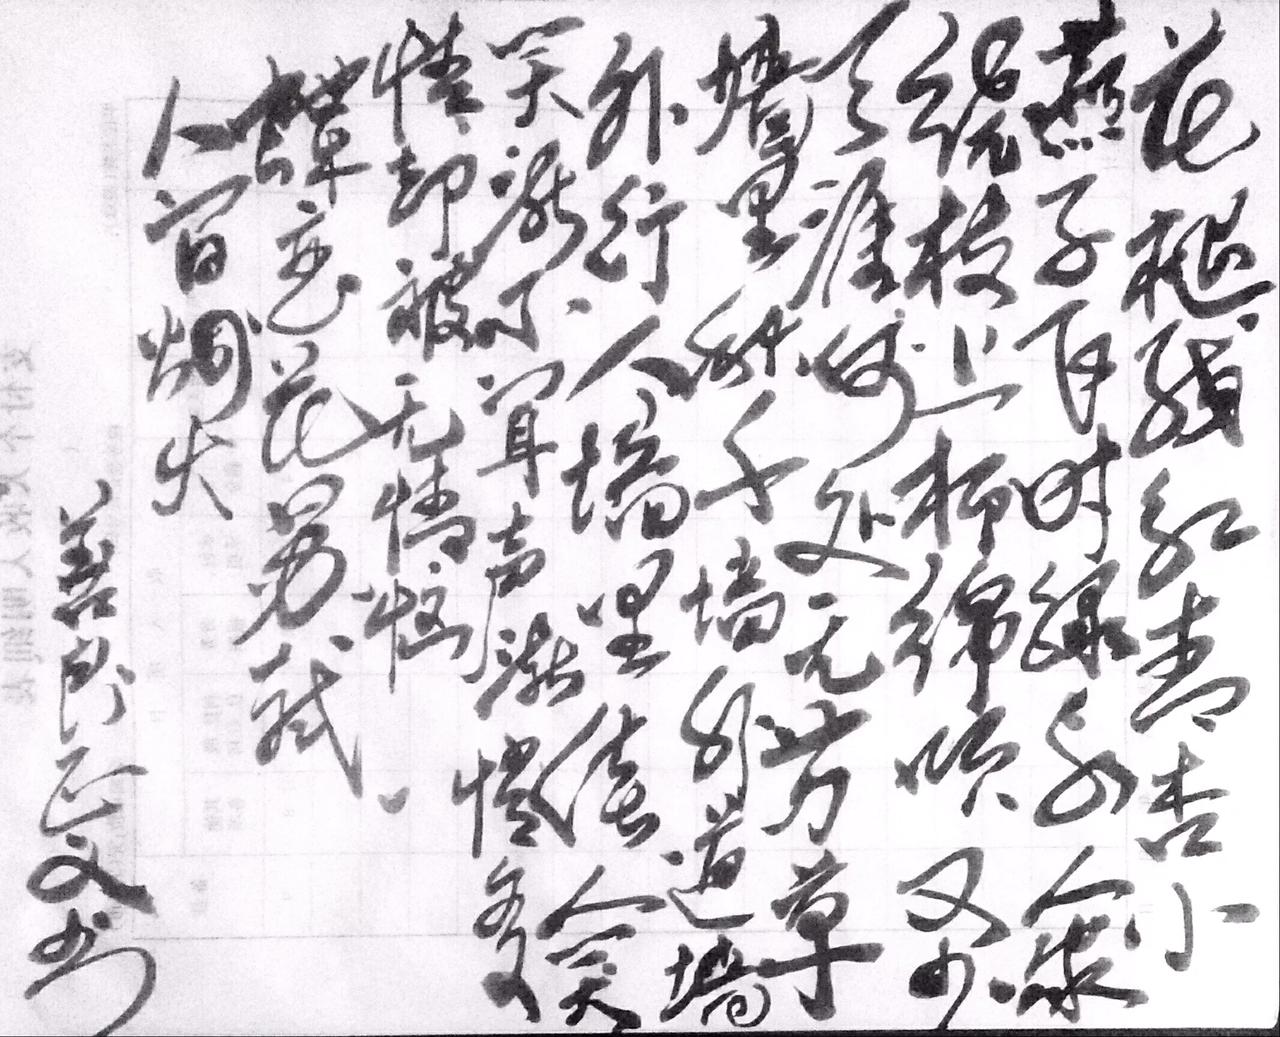 花褪残红青杏小
燕子月时绿水人家
绕枝上柳绵吹又少
天涯何处无芳草
墙里秋千墙外道墙
外行人墙里佳人笑
笑渐不闻声渐悄多
情却被无情恼
蝶恋花苏轼
人间烟火
善良正文书